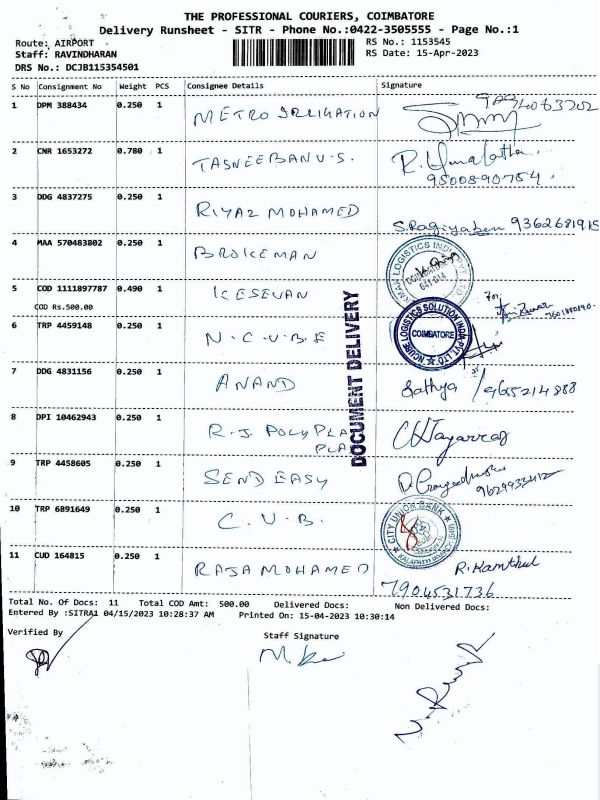 THE PROFESSIONAL COURIERS, COIMBATORE
Delivery Runsheet - SITR - Phone No.:0422-3505555 - Page No.:1
Route: AIRPORT RS No.: 1153545
Staff: RAVINDHARAN RS Date: 15-Apr-2023
DRS No.: DCJB115354501
S No Consignment No Weight PCS Consignee Details Signature
1 DPM 388434 0.250 1 METRO
2 CNR 1653272 0.780 1 TASNEEBANU.S. R.
9500890754.
3 DDG 4837275 0.250 1 RIYAZ MOHAMED 9362681915
4 MAA 570483802 0.250 1 BROKEMAN
LOGISTICS
5 COD 1111897787 0.490 1 KESEVAN For
COD Rs.500.00
6 TRP 4459148 0.250 1 N.C.U.B.E
NCUBE LOGISTICS SOLUTION INDIA PVT LTD
COIMBATORE
DOCUMENT DELIVERY
7 DDG 4831156 0.250 1 ANAND Sathya / 9655214888
8 DPI 10462943 0.250 1 R.J. POLY PLA
PLA
9 TRP 4458605 0.250 1 SEND EASY
10 TRP 6891649 0.250 1 C.U.B.
CITY UNION BANK
11 CUD 164815 0.250 1 RAJA MOHAMED R.
7904531736
Total No. Of Docs: 11 Total COD Amt: 500.00 Delivered Docs: Non Delivered Docs:
Entered By :SITRA1 04/15/2023 10:28:37 AM Printed On: 15-04-2023 10:30:14
Verified By Staff Signature